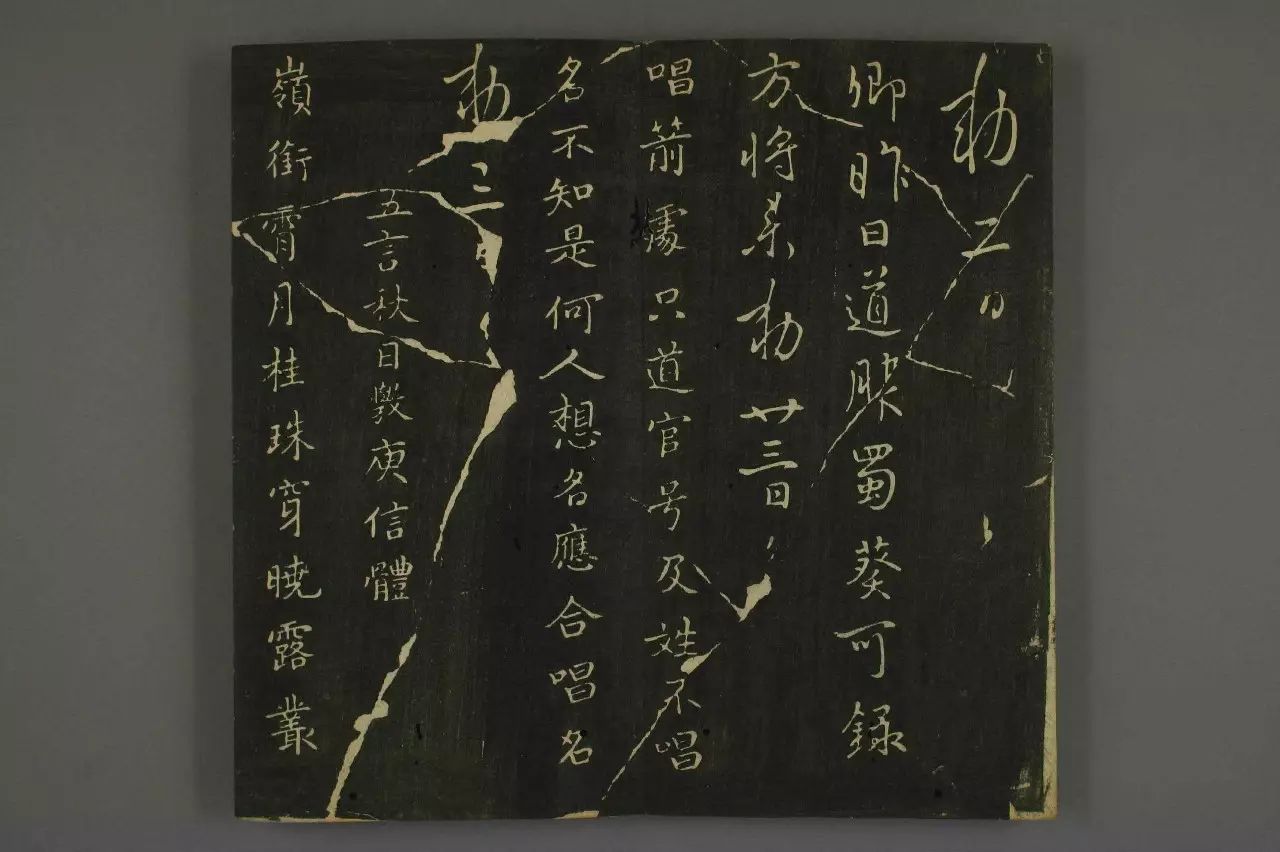 勅 二日
卿昨日道勝蜀葵可錄
方將来勅 廿三日
唱箭處只道官号及姓不唱
名不知是何人想名應合唱名
勅 三日
五言秋日斆庾信體
嶺銜霄月桂珠穿曉露叢